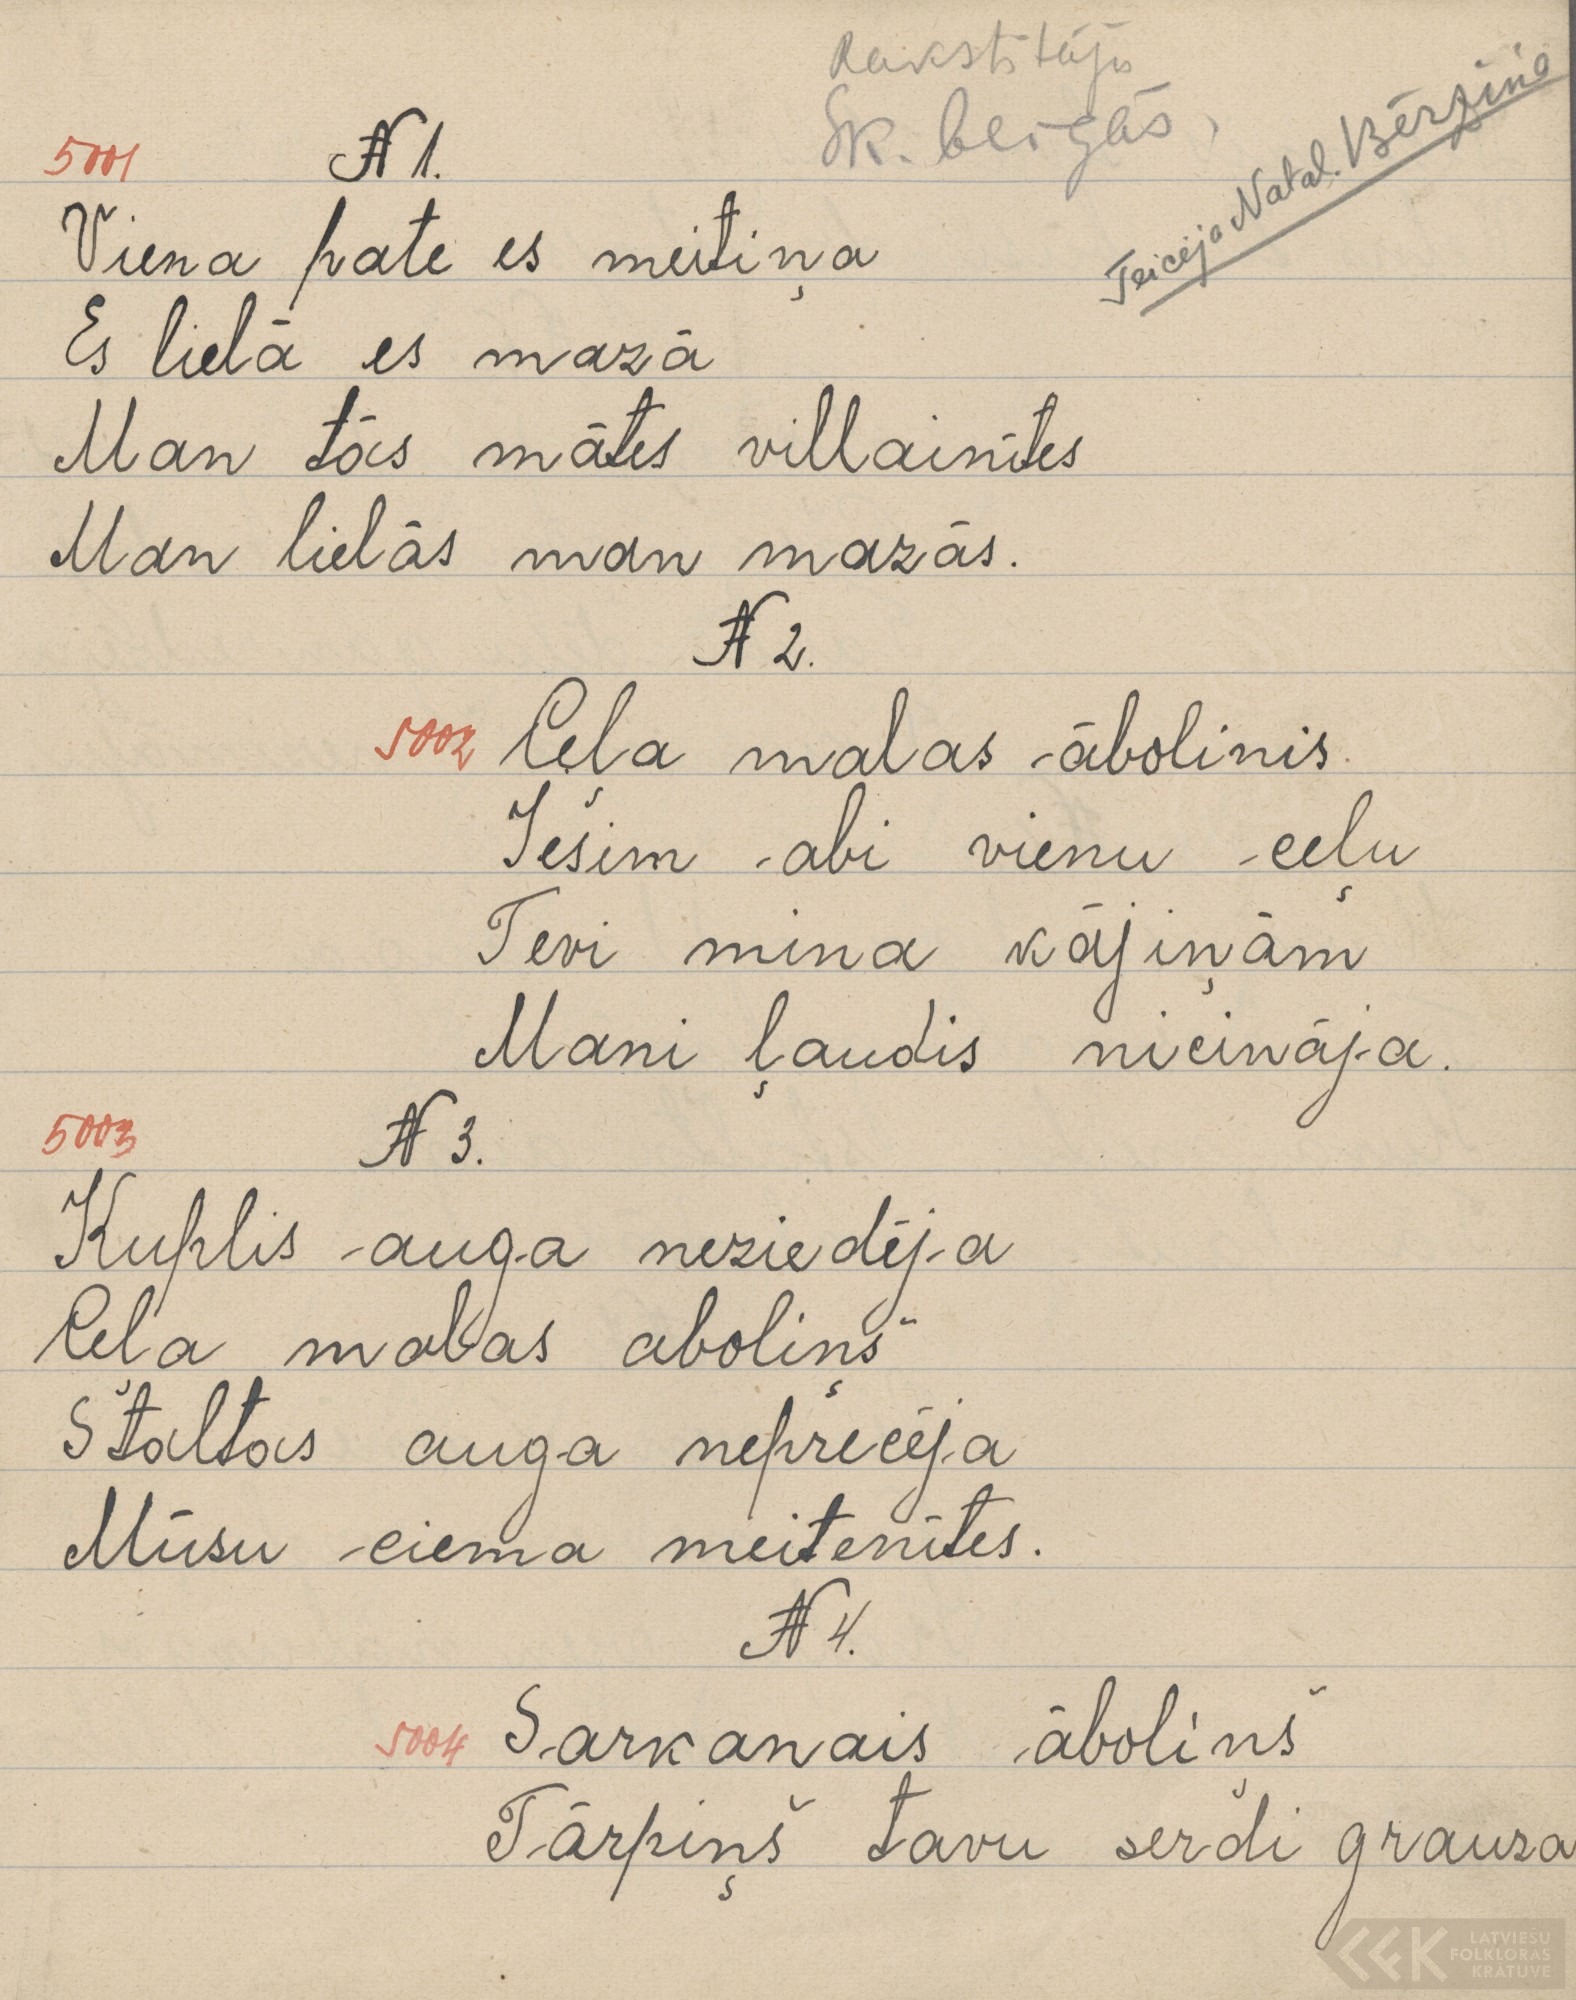 Rakstītāja
Sk. beigās,
Teicēja Natal. Bērziņa
5001 N 1.
Viena pate es meitiņa
Es lielā es mazā
Man tās mātes villainītes
Man lielās man mazās.
N 2.
5002 Ceļa malas ābolinis.
Iesim abi vienu ceļu
Tevi mina kājiņām
Mani ļaudis nicināja.
5003 N 3.
Kuplis auga neziedēja
Ceļa malas aboliņš
Staltas auga neprecēja
Mūsu ciema meitenītes.
N 4.
5004 Sarkanais āboliņš
Tārpiņš tavu serdi grauza
LATVIEŠU
FOLKLORAS
KRĀTUVE